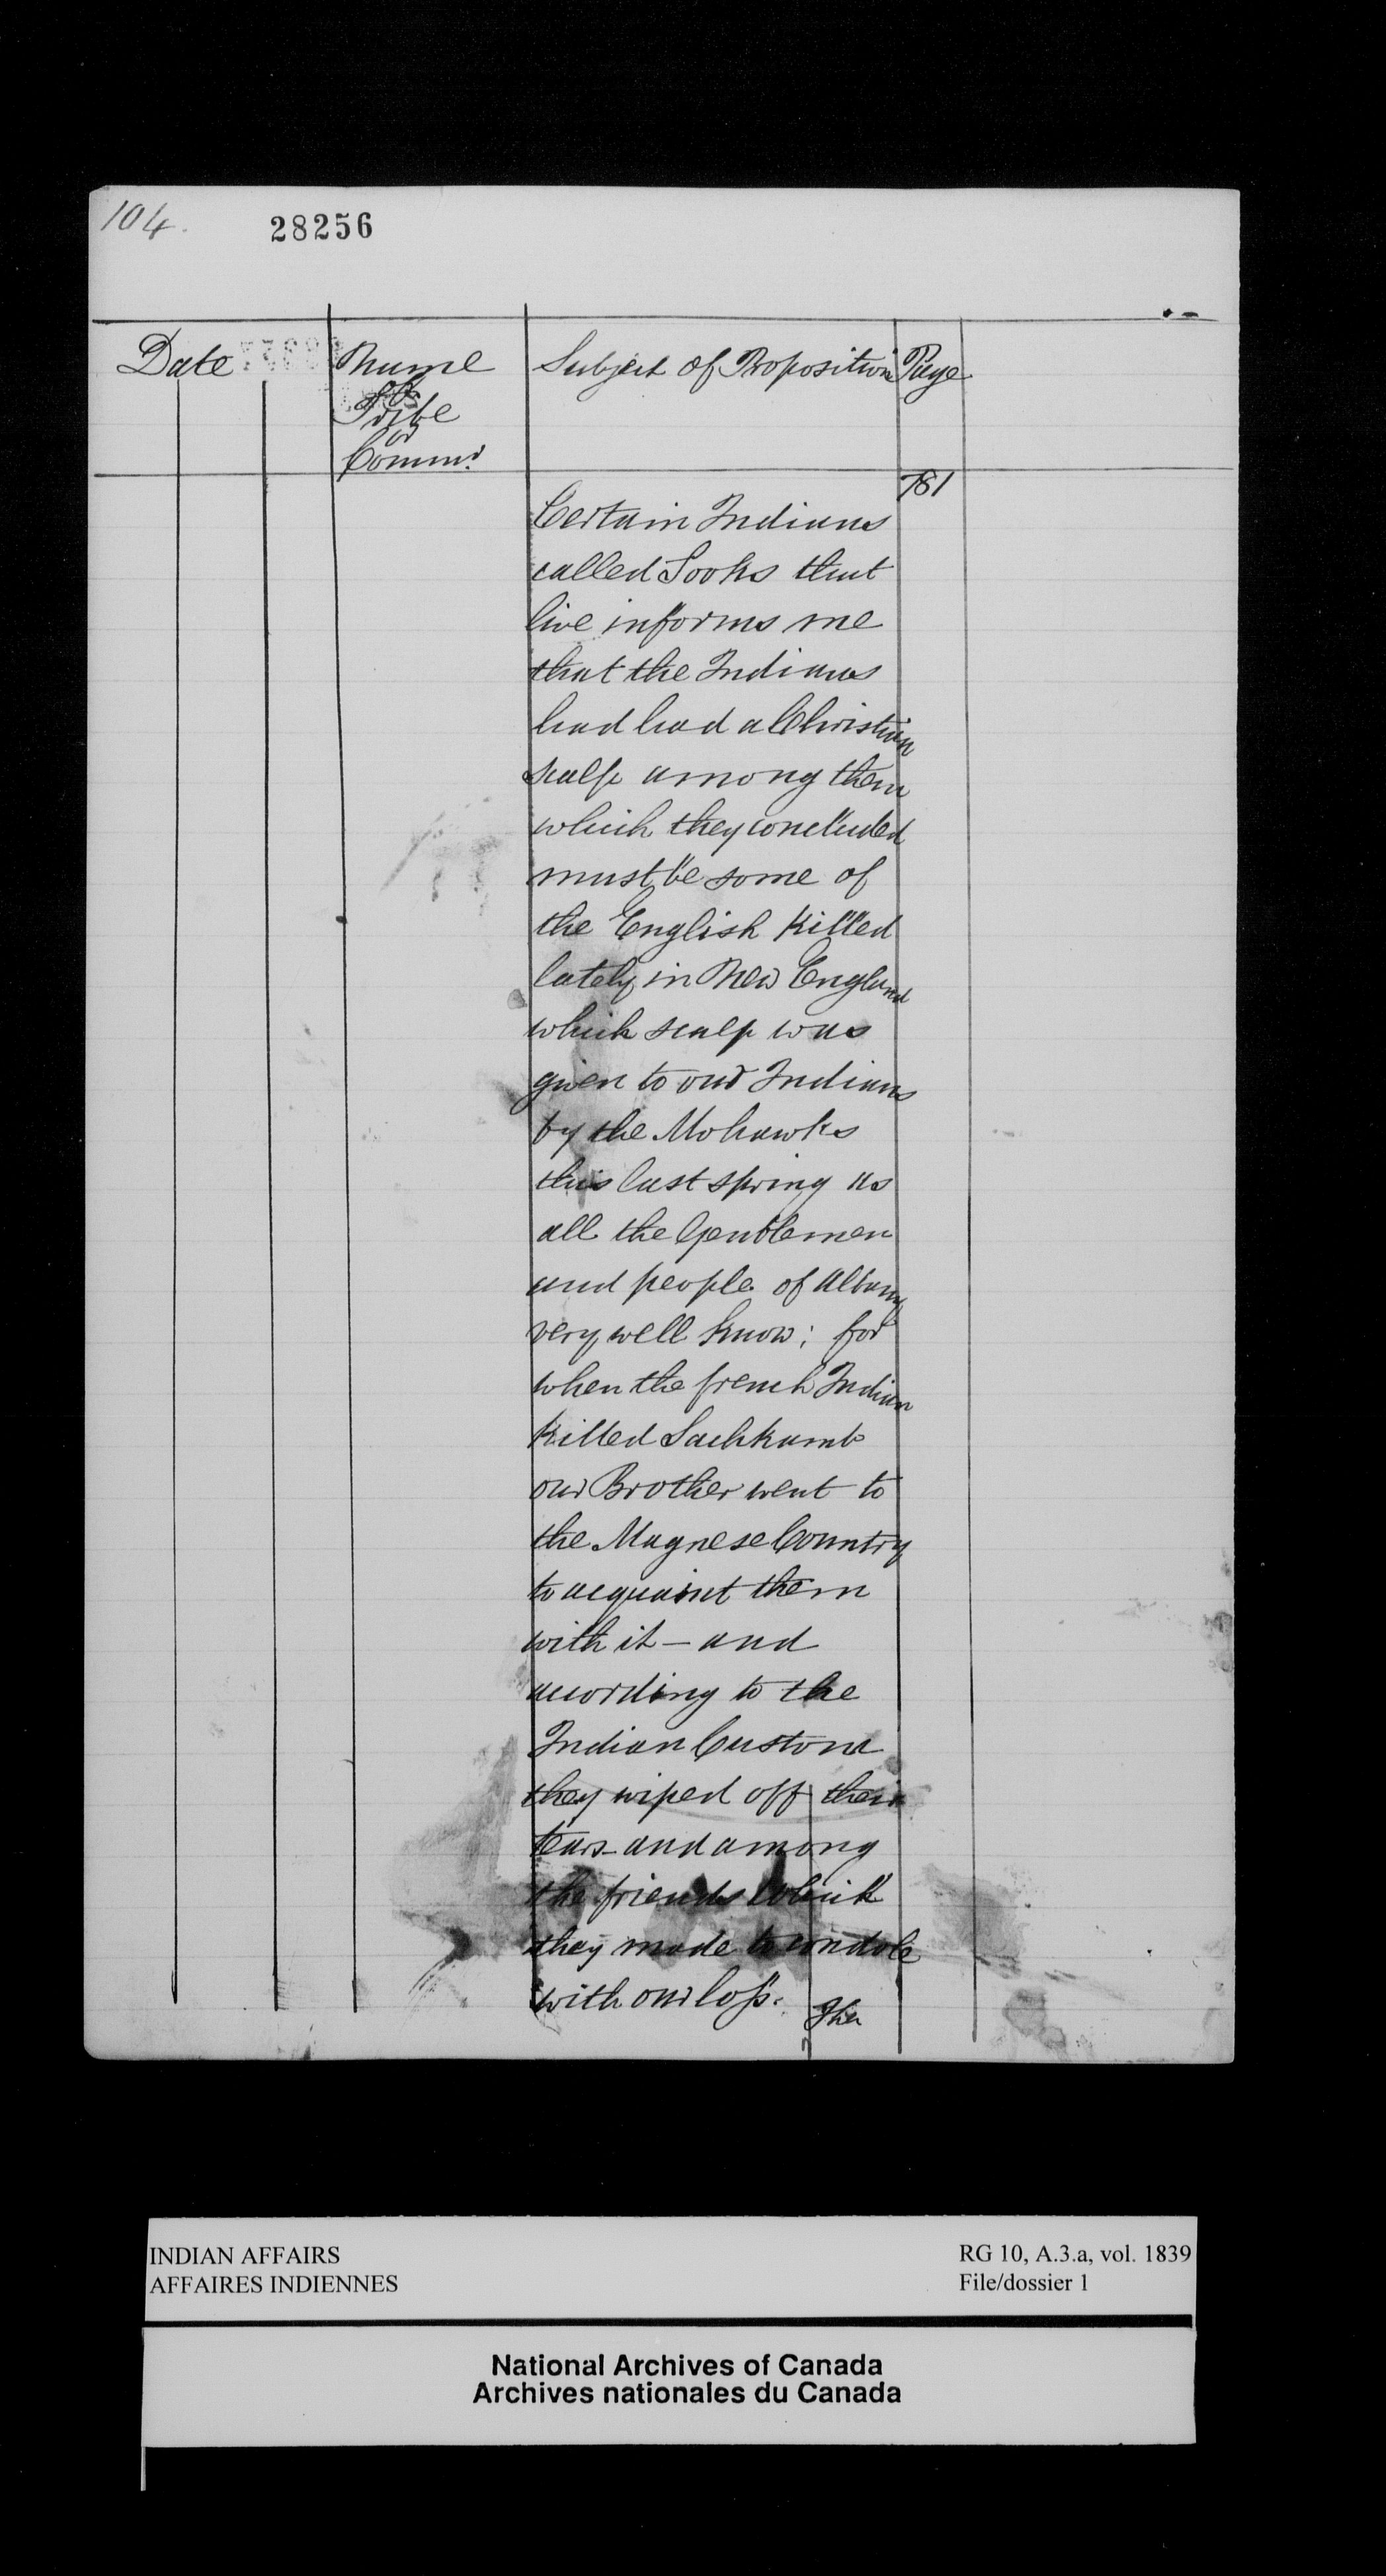 104.
28256
Date
Name
of
Tribe
or
Commd
Subject of Proposition
Page
781
Certain Indians
called Sooks that
live informs me
that the Indians
had had a Christian
scalp among them
which they concluded
must be some of
the English killed
lately in New England
which scalp was
given to our Indians
by the Mohawks
this last spring as
all the Gentlemen
and people of Albany
very well know; for
when the french Indian
killed Sachkamb
our Brother went to
the Magnese Country
to acquaint them
with it – and
acording to the
Indian Custom
they wiped off their
tears – and among
the friends which
they made to condole
with our loss.
The
INDIAN AFFAIRS
AFFAIRES INDIENNES
RG 10, A.3.a, vol. 1839
File/dossier 1
National Archives of Canada
Archives nationales du Canada